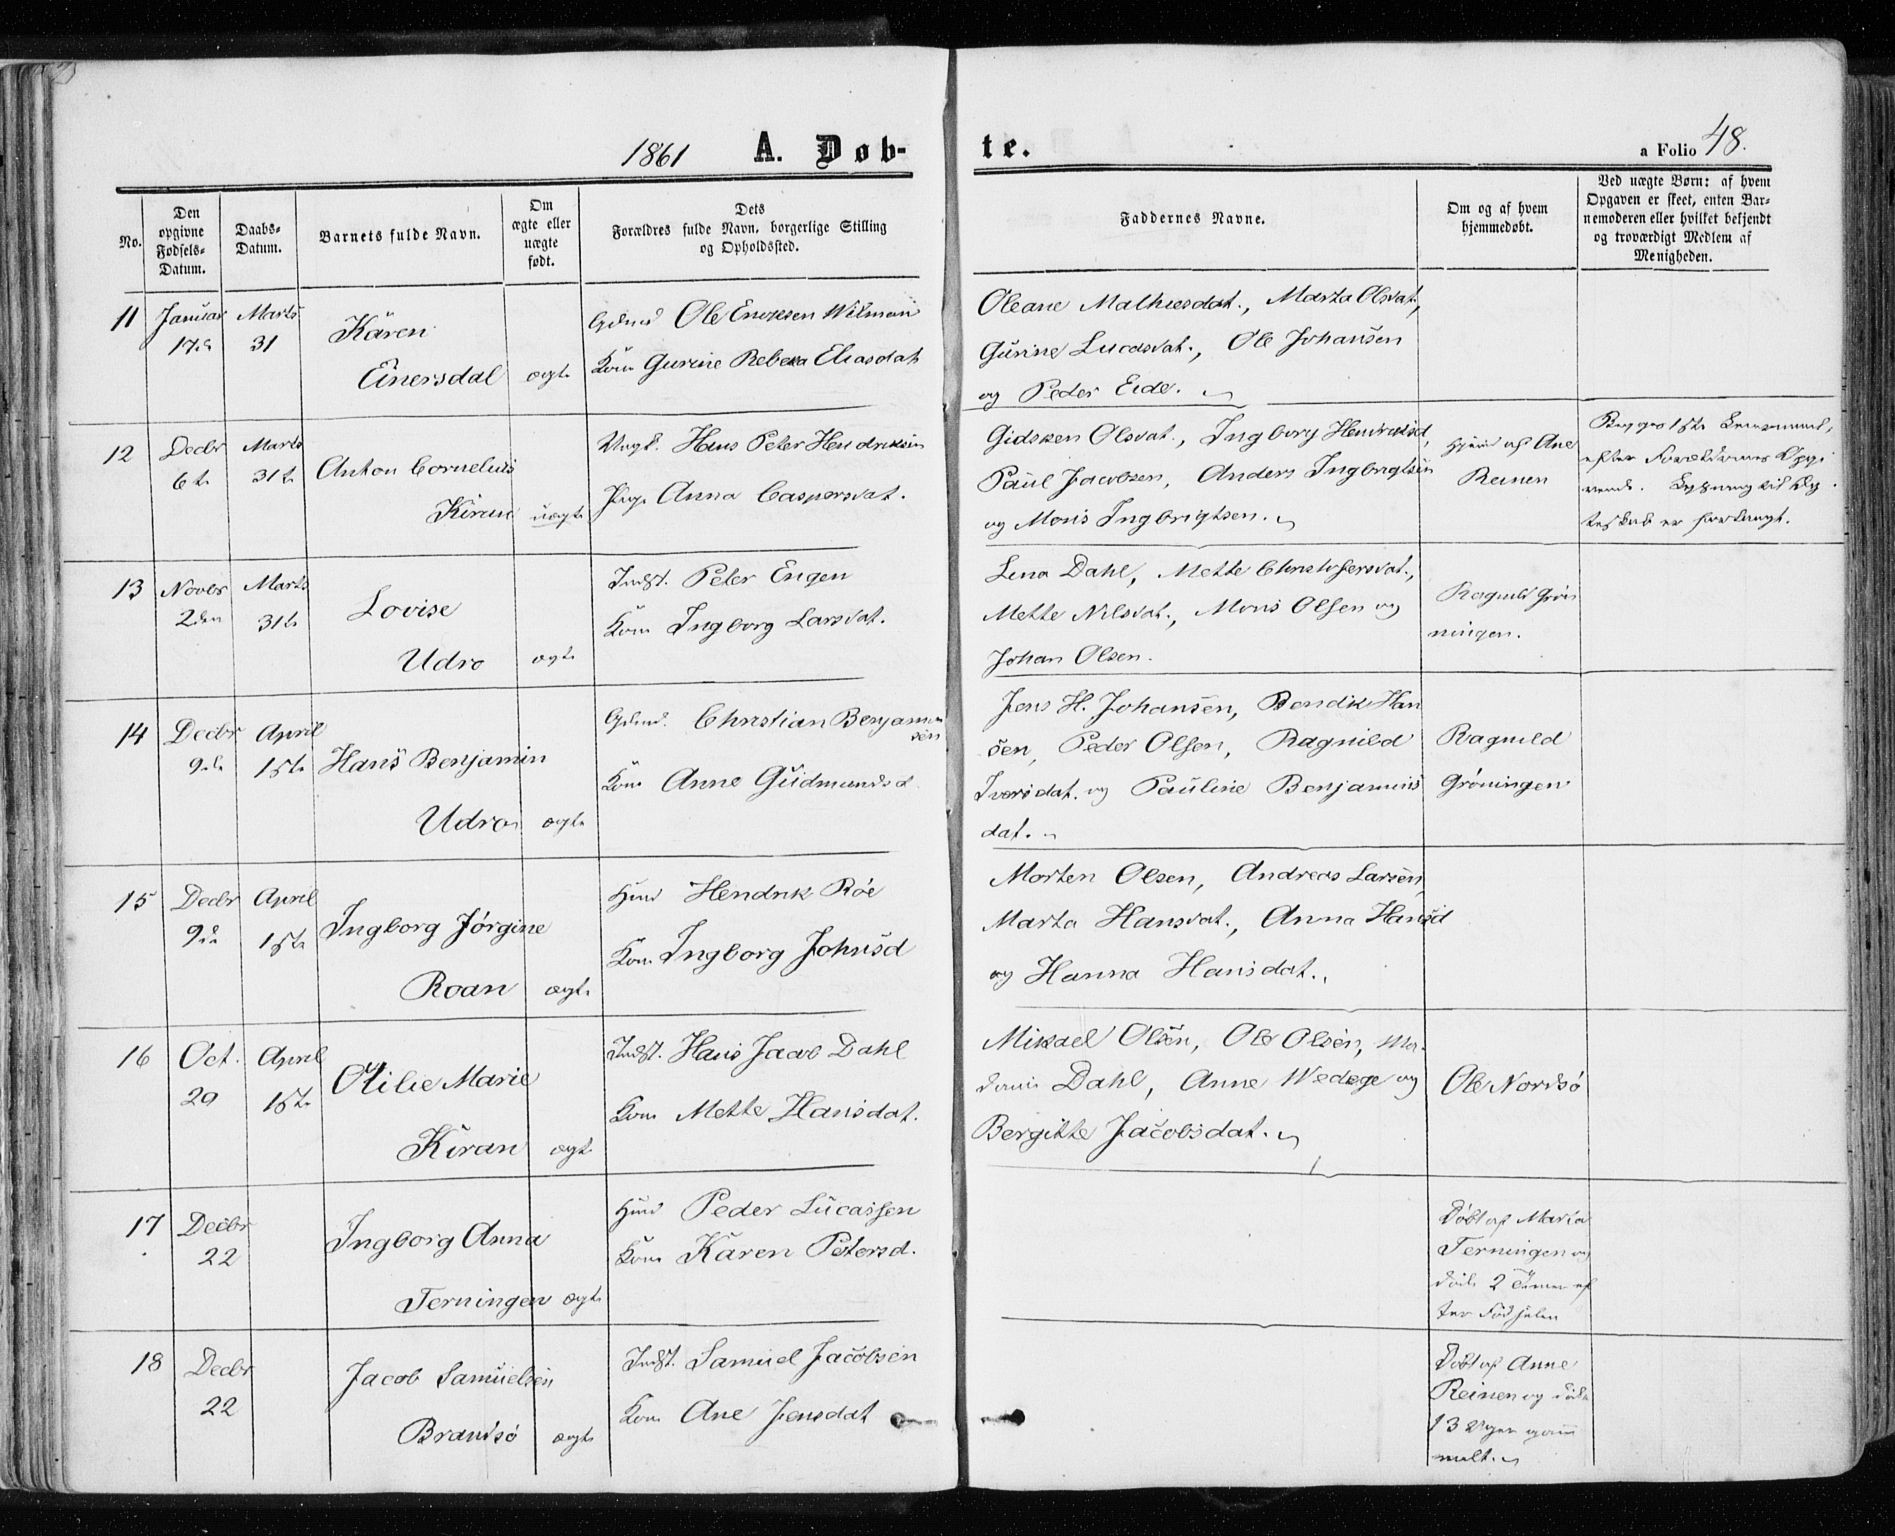 1861 A. Døb-
te.
a Folio 48.
No.
Den opgivne Fødsels-Datum.
Daabs-Datum.
Barnets fulde Navn.
Om ægte eller uægte født.
Dets
Forældres fulde Navn, borgerlige Stilling
og Opholdssted.
Faddernes Navne.
Om og af hvem
hjemmedøbt.
Ved uægte Børn: af hvem
Opgaven er skeet, enten Bar-
nemoderen eller hvilket bekjendt
og troværdigt Medlem af
Menigheden.
11 Januar Marts
17de 31
Karen
Einersdal ægte
Ole Wilman
Kone Gurine Rebeka Eliasdat
Oleane Mathiesdat., Marta Olsdat.,
Gurine Lucasdat., Ole Johansen
og Peder Eide.
12 Decbr Marts
6te 31te
Anton Cornelius
Kiran uægte
Ungk. Hans Peter Hendriksen
Pige Anna Caspersdat.
Gidsken Olsdat., Ingborg Hendriksd.,
Paul Jacobsen, Anders Ingbrigtsen
og Monis Ingbrigtsen.
Hjemd af Ane
Reinen
Begges 1ste
efter Forældrenes Opgi
vende.
er forlangt.
13 Novbr Marts
2den 31te
Lovise
Udro ægte
Indst. Peter Engen
Kone Ingborg Larsdat.
Lena Dahl, Mette Christofersdat.,
Mette Nilsdat., Monis Olsen og
Johan Olsen.
Ragnild Grøn
ningen.
14 Decbr April
9de 1ste
Hans Benjamin
Udro ægte
Gdmd. Christian Benjamin
sen
Kone Anne Gudmundsd.
Jens H. Johansen, Bendik Han
sen, Peder Olsen, Ragnild
Iversdat. og Pauline Benjamins
dat.
Ragnild
Grøningen
15 Decbr April
9de 1ste
Ingborg Jørgine
Roan ægte
Hmd Hendrik Röe
Kone Ingborg Johnsd
Morten Olsen, Andreas Larsen,
Marta Hansdat., Anna Hansd
og Hanna Hansdat.
16 Oct. April
29 1ste
Otilie Marie
Kiran ægte
Indst. Hans Jacob Dahl
Kone Mette Hansdat.
Mikael Olsen, Ole Olsen,
Dahl, Anne Wedege og
Bergitte Jacobsdat.
Ole Nordsø
17 Decbr
22
Ingborg Anna
Terningen ægte
Hmd Peder Lucassen
Kone Karen Petersd.
Døbt af Maria
Terningen og
døde 2 Timer ef
ter Fødselen
18 Decbr
22
Jacob Samuelsen
Brandsø ægte
Indst. Samuel Jacobsen
Kone Ane Jensdat
Døbt af Anne
Reinen og døde
13 Uger gam
melt.